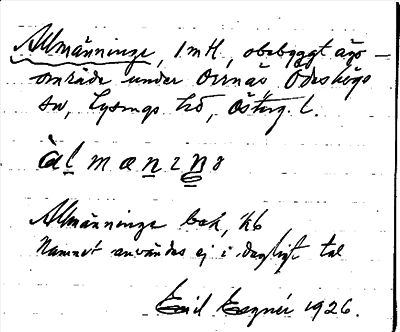 Allmänninge, 1 mtl, obebyggt ägo-
område under Orrnäs Ödeshögs
sn, Lysings hd, Österg. l.
àl mænɪŋə
Allmänninge bok, kb
Namnet användes ej i dagligt tal
Emil 1926.